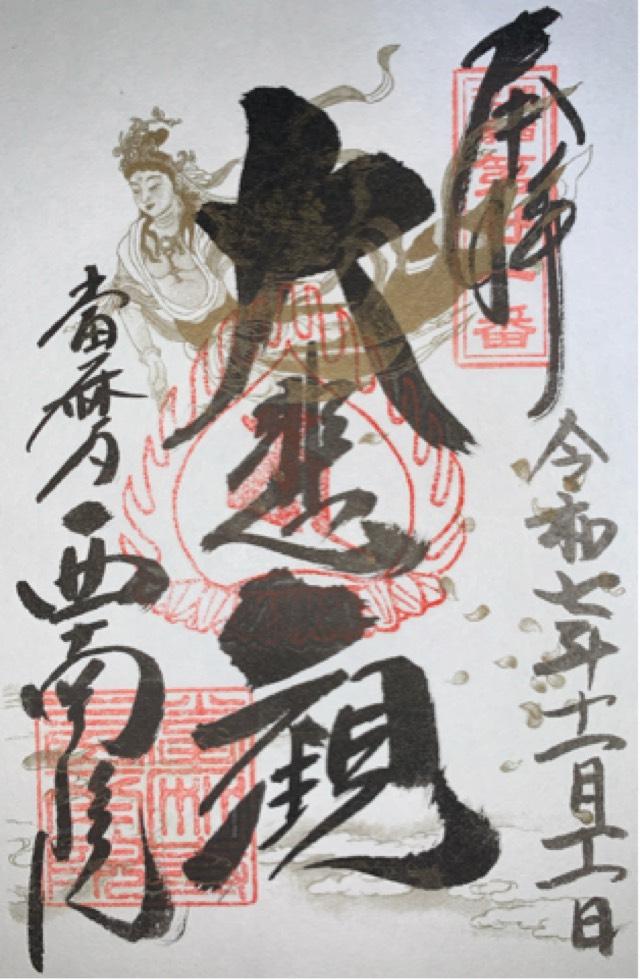 奉拝
第廿一番
令和七年十一月十一日
大悲観
當麻寺
西南院